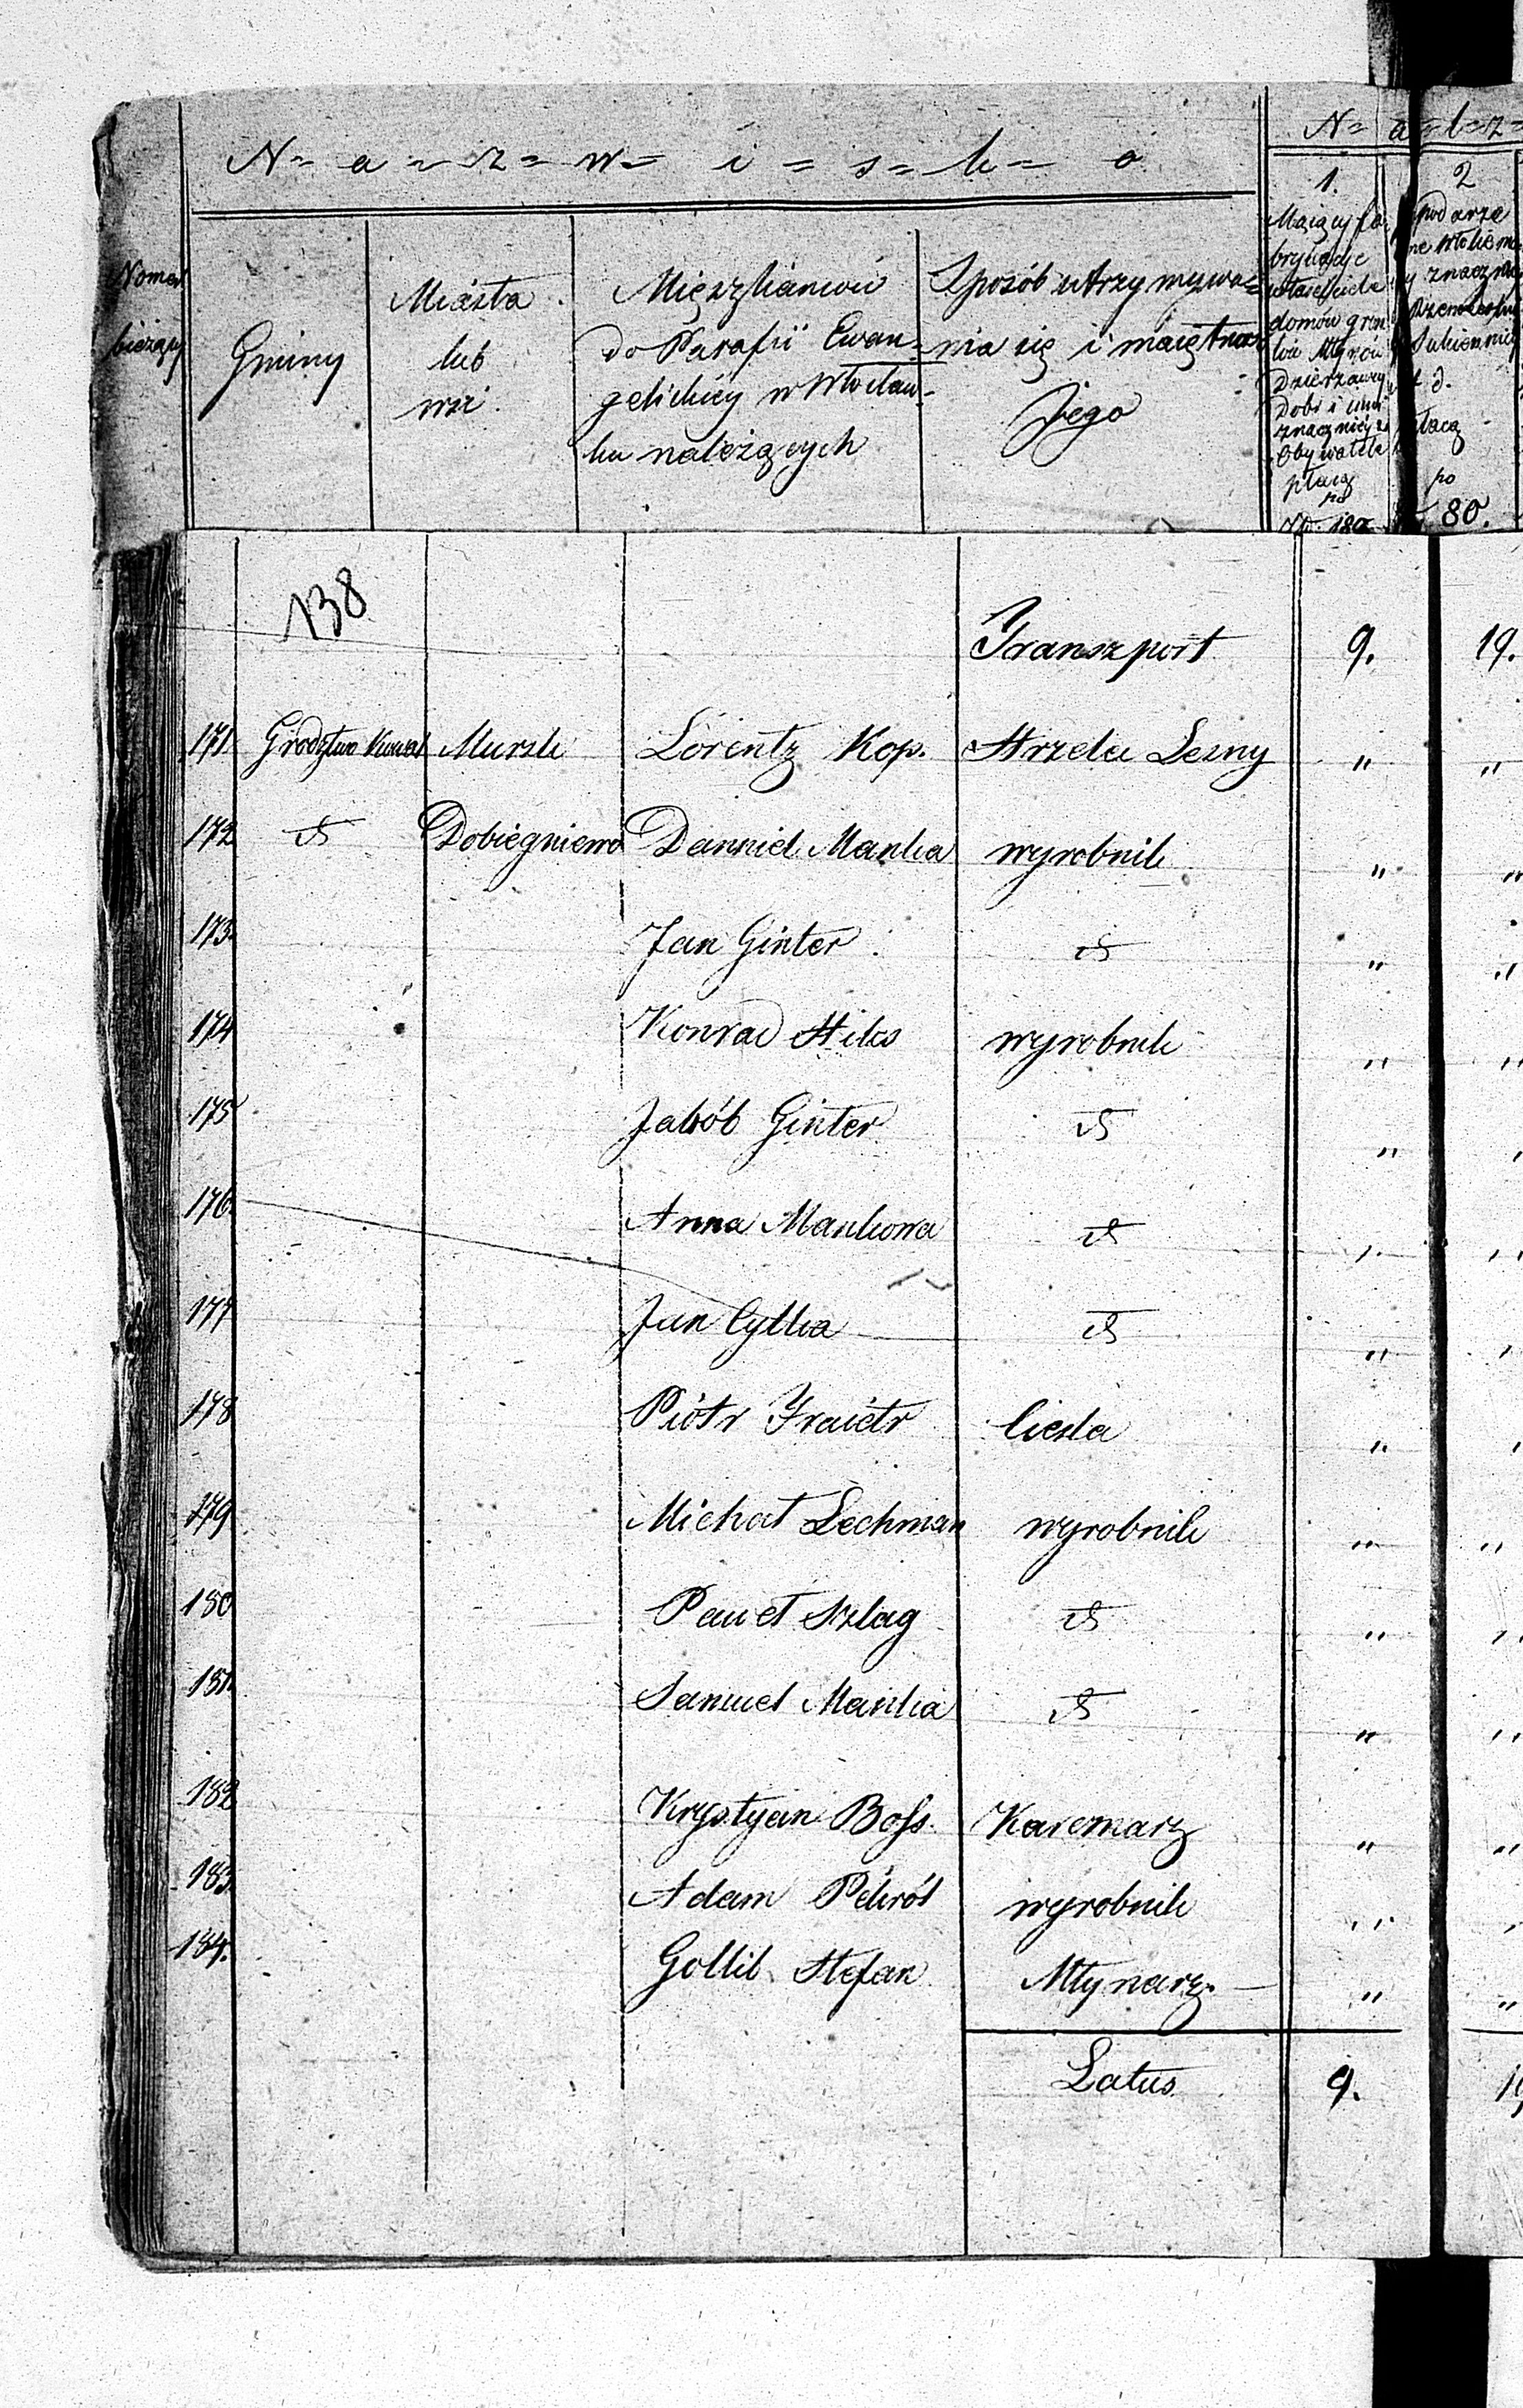 N = a = z = w = i = s = k = o
N = a = l = z =
Nomer bieżący
Gminy
Miasta lub wsi
Mięszkańców
do Parafii Ewan=
gelickiey w Włocław=
ku należących
Sposób utrzymywa=
nia się i maiętność
Jego
1.
Maiący fa
bryki
właściciele
domów
Młynów
Dzierzawcy
Dobr i inni
znacznieysi
Obywatele
płacą
po
Zł. 180
2
płacą
po
80.
138
Transzport 9. 19.
171 Grodztwo Kowal Mursk Lorentz Kop. Strzelec Lesny " "
172 dt Dobiegniewo Danniel Manka wyrobnik " "
173. Jan Ginter dt " "
174 Konrad Hiks wyrobnik " "
175 Jakób Ginter dt " "
176. Anna Mankowa dt " "
177 Jan Cylka dt " "
178 Piótr Traietr Ciesla " "
179 Michał Lechman wyrobnik " "
180 Paweł Szlag dt " "
181. Samuel Manka dt " "
182 Krystyan Boss. Karcmarz " "
183. Adam Pékról wyrobnik " "
184. Gottlib Stefan Młynarz. " "
Latus 9. 19